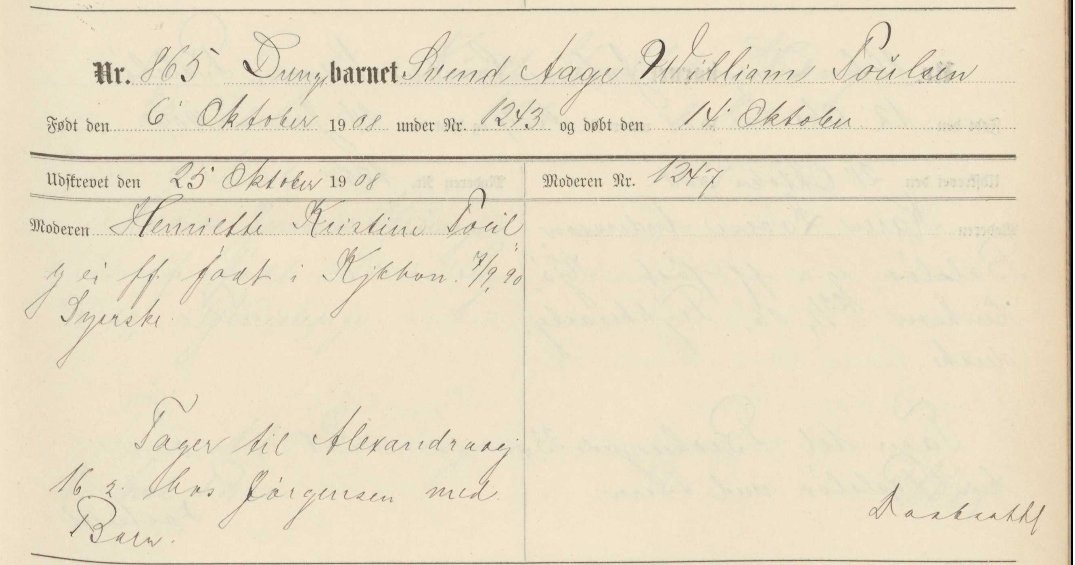 Nr. 865 Drengbarnet Svend Aage William Poulsen
Født den 6 Oktober 1908 under Nr. 1243 og døbt den 14 Oktober
Udskrevet den 25 Oktober 1908
Moderen Nr. 1247
Moderen Henriette Kristine Poul
g ei ff født i Kjbhvn. 7/9 90
Syerske
Tager til Alexandravej
16 2 hos Jørgensen med
Barn.